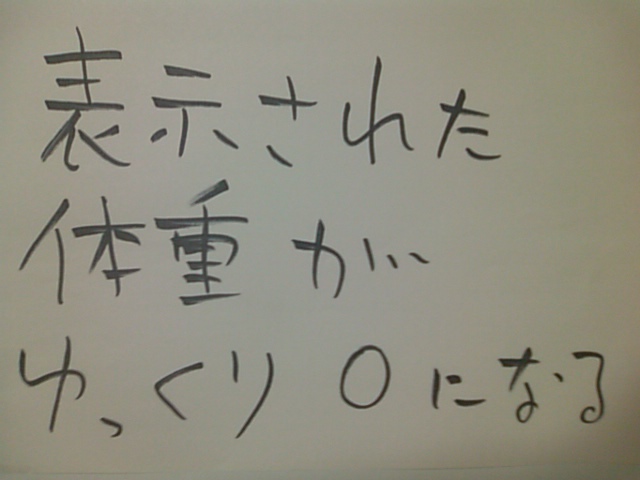 表示された
体重が
ゆっくり0になる